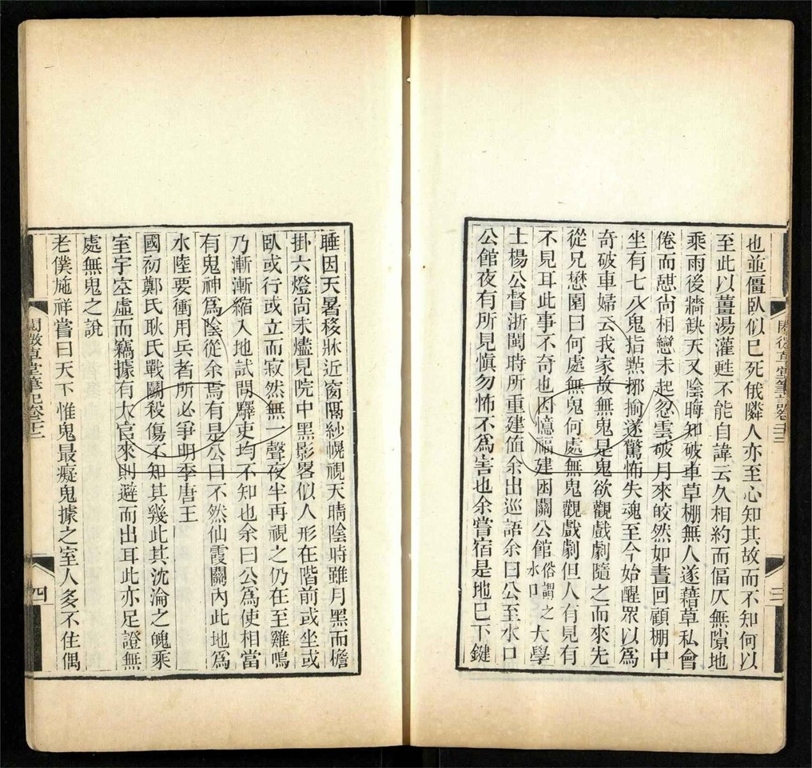 也並僵臥似已死俄隣人亦至心知其故而不知何以
至此以薑湯灌甦不能自諱云久相約而偪仄無隙地
乘雨後牆缺天又陰晦知破車草棚無人遂藉草私會
倦而憩尚相戀未起忽雲破月來皎然如晝回顧棚中
坐有七八鬼指點揶揄遂驚怖失魂至今始醒眾以為
奇破車婦云我家故無鬼是鬼欲觀戲劇隨之而來先
從兄懋園曰何處無鬼何處無鬼觀戲劇但人有見有
不見耳此事不奇也因憶福建囦關公館俗謂之水口大學
士楊公督浙閩時所重建值余出巡語余曰公至水口
公館夜有所見慎勿怖不為害也余嘗宿是地已下鍵
閱微草堂筆記卷十三
三
睡因天暑移牀近窗隔紗幌視天晴陰時雖月黑而檐
掛六燈尚未燼見院中黑影畧似人形在階前或坐或
臥或行或立而寂然無一聲夜半再視之仍在至雞鳴
乃漸漸縮入地試問驛吏均不知也余曰公為使相當
有鬼神為陰從余焉有是公曰不然仙霞關內此地為
水陸要衝用兵者所必爭明季唐王
國初鄭氏耿氏戰鬬殺傷不知其幾此其沈淪之魄乘
室宇空虛而竊據有大官來則避而出耳此亦足證無
處無鬼之說
老僕施祥嘗曰天下惟鬼最癡鬼據之室人多不住偶
閱微草堂筆記卷十三
四